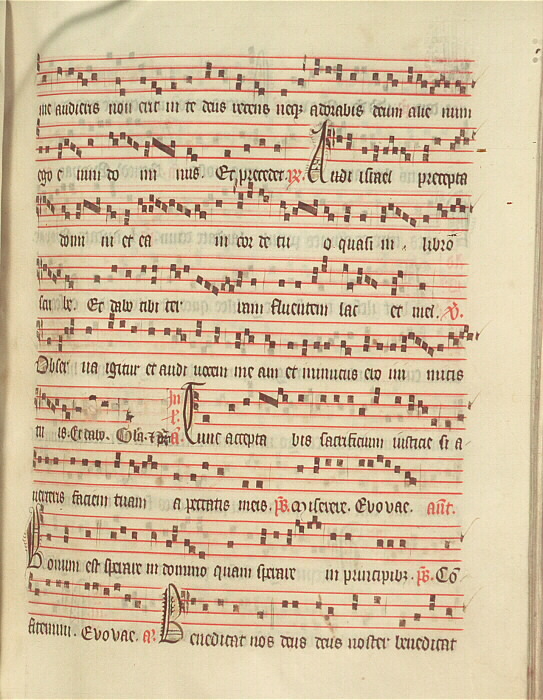 me audieris non erit in te deus recens neqꝫ adorabis deum alie num
ego e nim do mi nus. Et precedet. ꝶ. Audi israel precepta
domi ni et ea in cor de tu o quasi in libro
scri be. Et dabo tibi ter ram fluentem lac et mel. ℣.
Obser ua igitur et audi uocem me am et inimicus ero ini micis
tu is. Et dabo. Gl̄a. In
Tunc accepta bis sacrificium iusticie si a
uerteris faciem tuam a peccatis meis. p̄s. Miserere. Evovae. añt.
Bonum est sperare in domino quam sperare in principibꝫ. p̄s. Cō
fitemini. Evovae. a. Benedicat nos deus deus noster benedicat